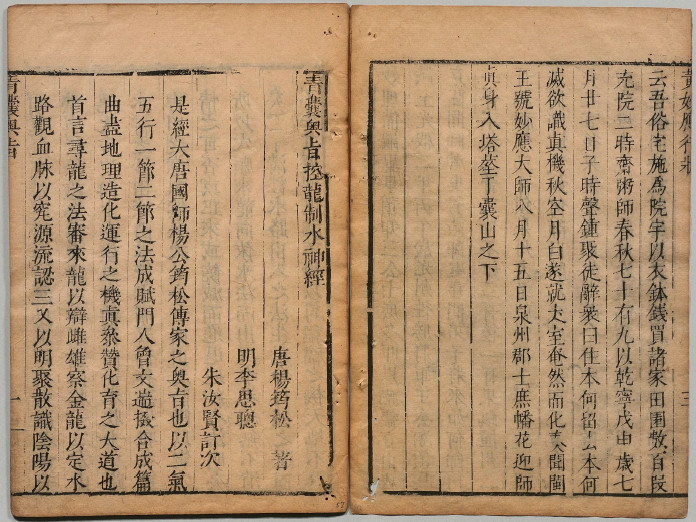 黃妙應行
云吾俗宅施爲院宇以衣鉢錢買諸家田園數百段
充院二時齋粥師春秋七十有九以乾寧戊申歲七
月廿七日子時聲鍾聚徒辭衆曰住本何留去本何
滅欲識真機秋空月白遂就丈室奄然而化聞閩
王號妙應大師八月十五日泉州郡士庶幡花迎師
真身入塔塟于囊山之下
青囊奧旨 龍制水神經
唐楊筠松 著
明李思聰
朱汝賢訂次
是經大唐國師楊公筠松傳家之奧旨也以二氣
五行一節二節之法成賦門人曾文遄 合成篇
曲盡地理造化運行之機真叅贊化育之大道也
首言尋龍之法審來龍以辯雌雄察金龍以定水
路觀血脉以究源流認三叉以明聚散識陰陽以
青囊奧旨
一